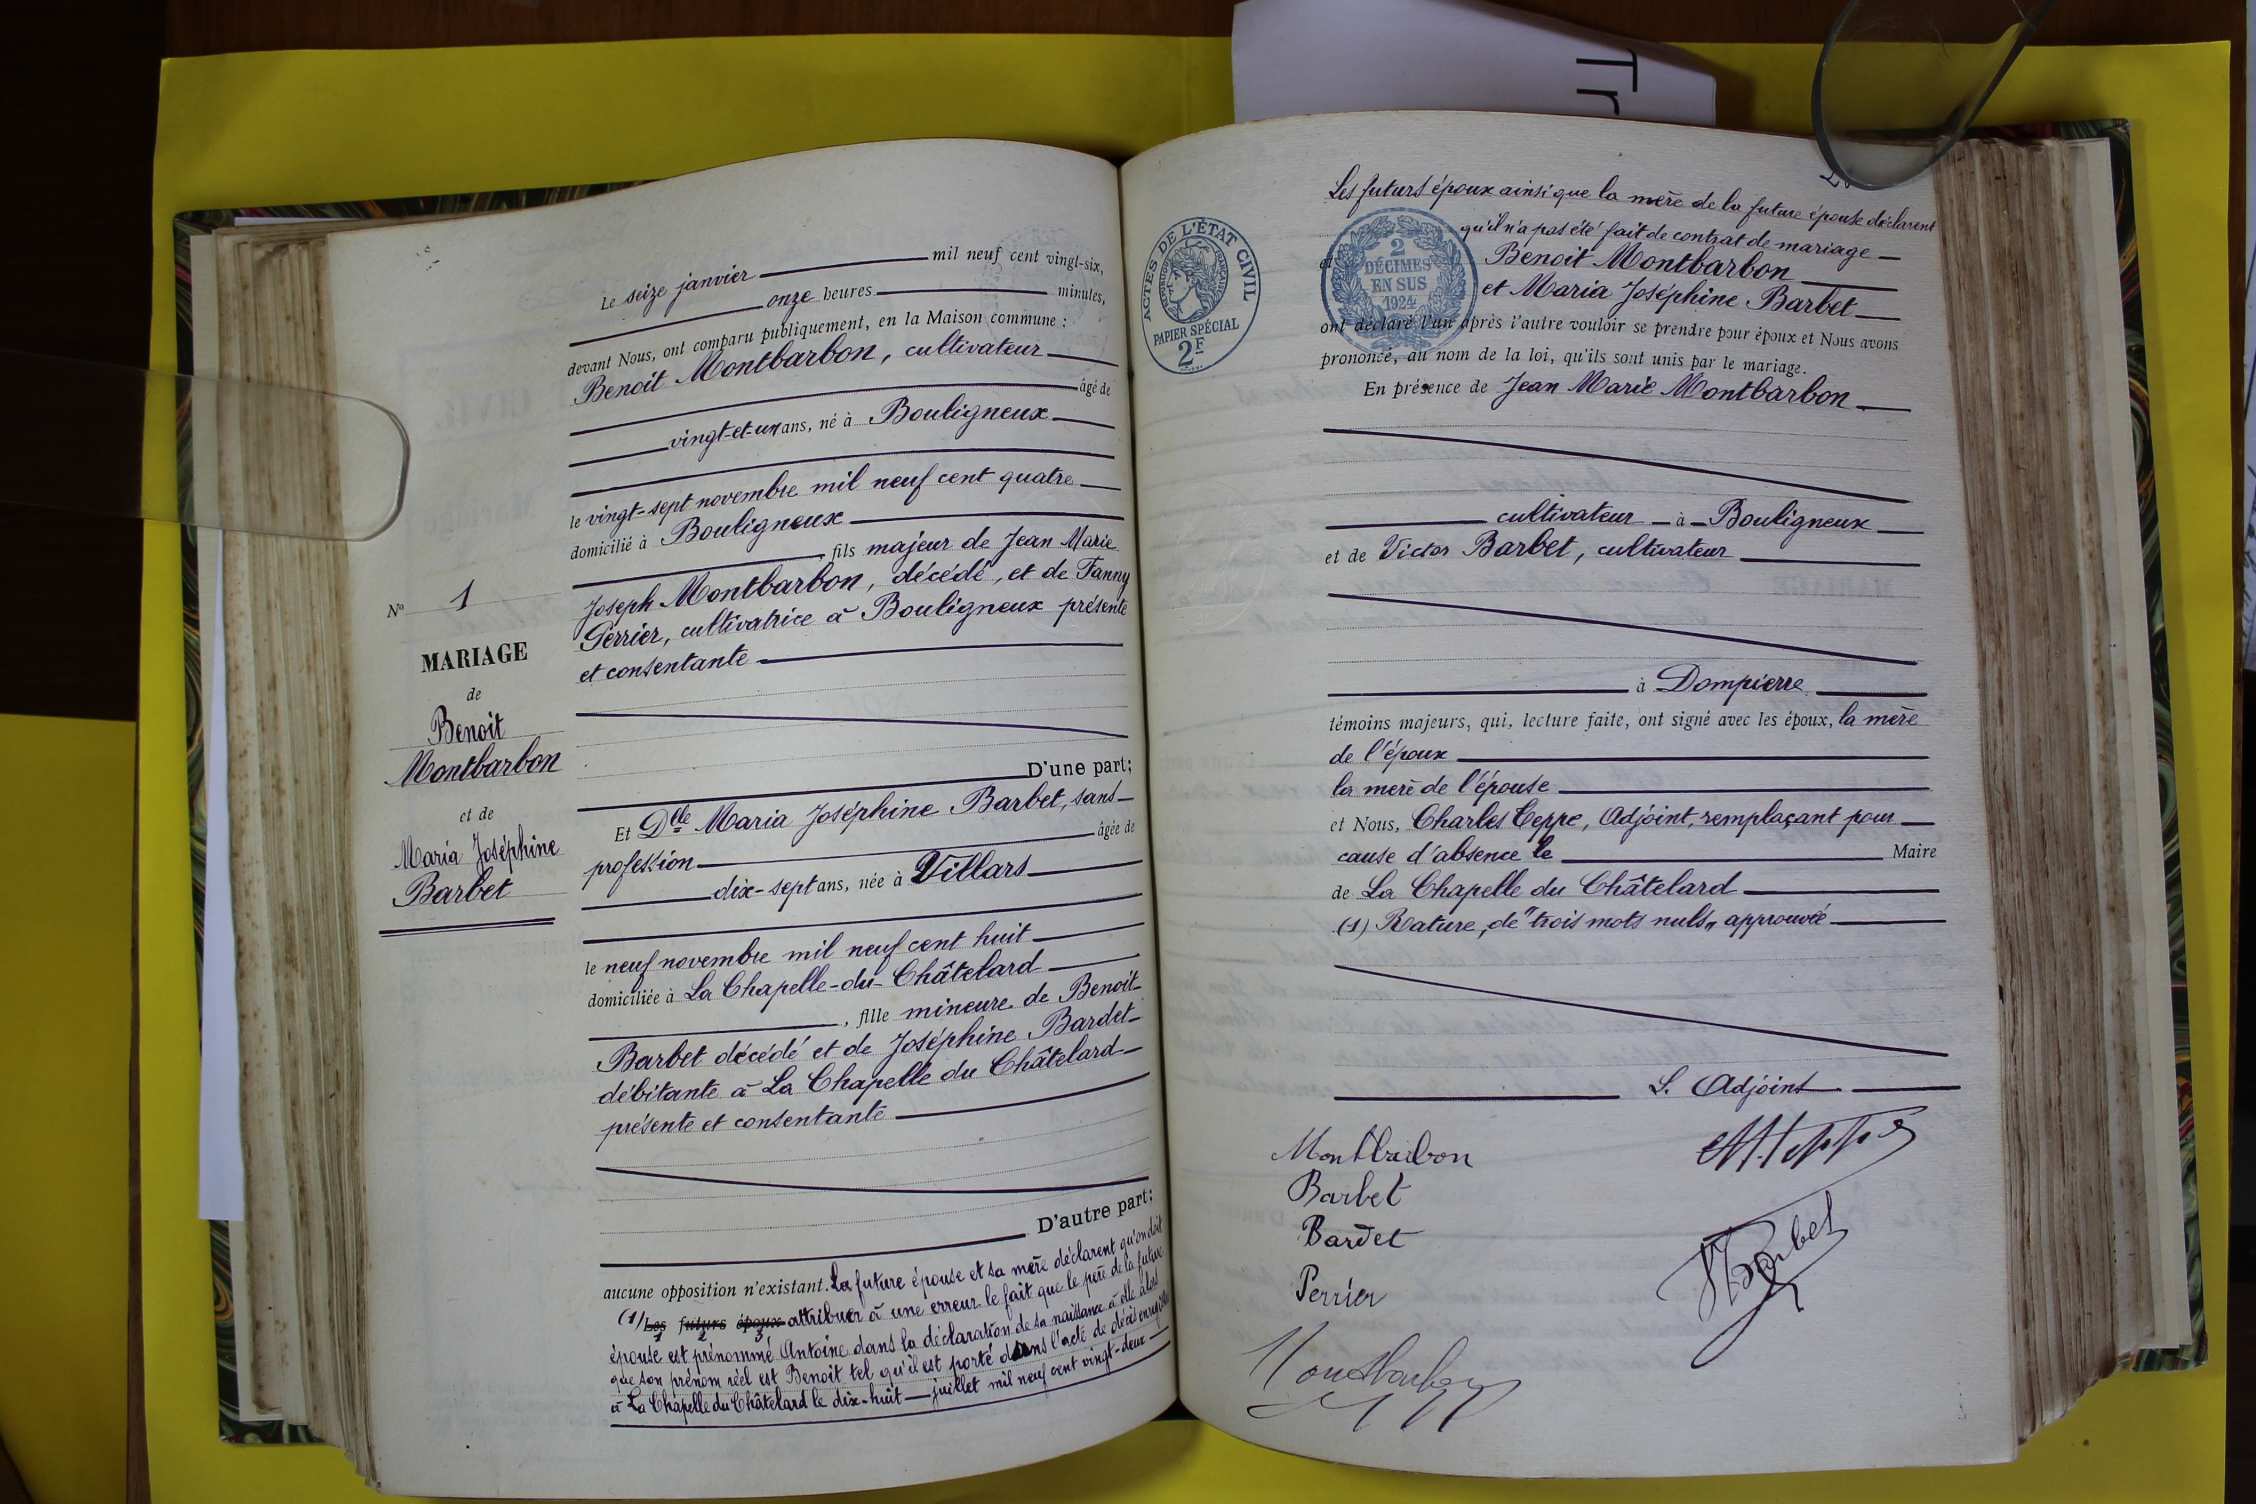 Tr
N° 1
MARIAGE
de
Benoit
Montbarbon
et de
Maria Joséphine
Barbet
Le seize janvier mil neuf cent vingt-six,
onze heures minutes,
devant Nous, ont comparu publiquement, en la Maison commune :
Benoit Montbarbon, cultivateur
âgé de
vingt-et-un ans, né à Bouligneux
le vingt-sept novembre mil neuf cent quatre
domicilié à Bouligneux
, fils majeur de Jean Marie
Joseph Montbarbon, décédé, et de Fanny
Perrier, cultivatrice à Bouligneux présente
et consentante
D'une part;
Et Dlle Maria Joséphine Barbet, sans
profession âgée de
dix-sept ans, née à Villars
le neuf novembre mil neuf cent huit
domiciliée à La Chapelle-du-Châtelard
, fille mineure de Benoit
Barbet décédé et de Joséphine Bardet
débitante à La Chapelle du Châtelard
présente et consentante
D'autre part;
aucune opposition n'existant. La future épouse et sa mère déclarent qu'on doit
(1) Les futurs époux attribuer à une erreur le fait que le père de la future
1 2 3
épouse est prénommé Antoine dans la déclaration de sa naissance à elle alors
que son prénom réel est Benoit tel qu'il est porté dans l'acte de décès enregistré
à La Chapelle du Châtelard le dix-huit juillet mil neuf cent vingt-deux
ACTES DE L'ÉTAT CIVIL
RÉPUBLIQUE FRANÇAISE
PAPIER SPÉCIAL
2F
2
DÉCIMES
EN SUS
1924
Les futurs époux ainsi que la mère de la future épouse déclarent
qu'il n'a pas été fait de contrat de mariage
et Benoit Montbarbon
et Maria Joséphine Barbet
ont déclaré l'un après l'autre vouloir se prendre pour époux et Nous avons
prononcé, au nom de la loi, qu'ils sont unis par le mariage.
En présence de Jean Marie Montbarbon
cultivateur à Bouligneux
et de Victor Barbet, cultivateur
à Dompierre
témoins majeurs, qui, lecture faite, ont signé avec les époux, la mère
de l'époux
la mère de l'épouse
et Nous, Charles Teppe, Adjoint, remplaçant pour
cause d'absence le Maire
de La Chapelle du Châtelard
(1) Rature, de "trois mots nuls" approuvée
L. Adjoint
Montbarbon
Barbet
Bardet
Perrier
Montbarbon
Teppe
Barbet